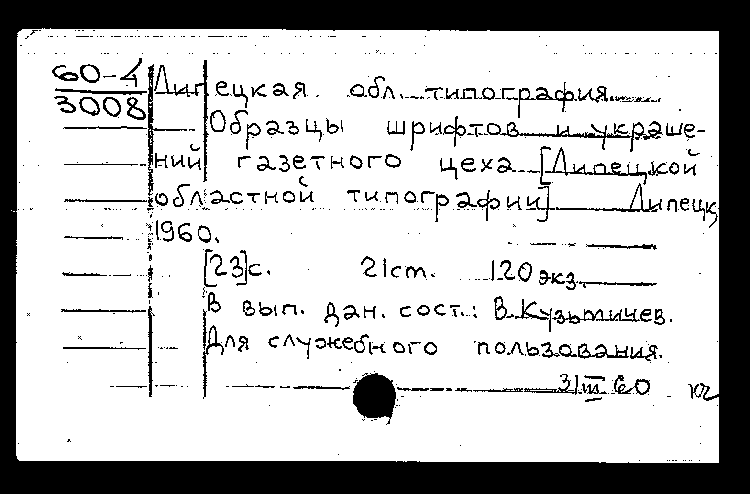 60-4
3008
Липецкая обл. типография
Образцы шрифтов и украше-
ний газетного цеха [Липецкой
областной типографии] Липецк,
1960.
[23]с. 21cm. 120 экз.
В вып. дан. сост.: В.Кузьмичев.
Для служебного пользования.
31 III 60